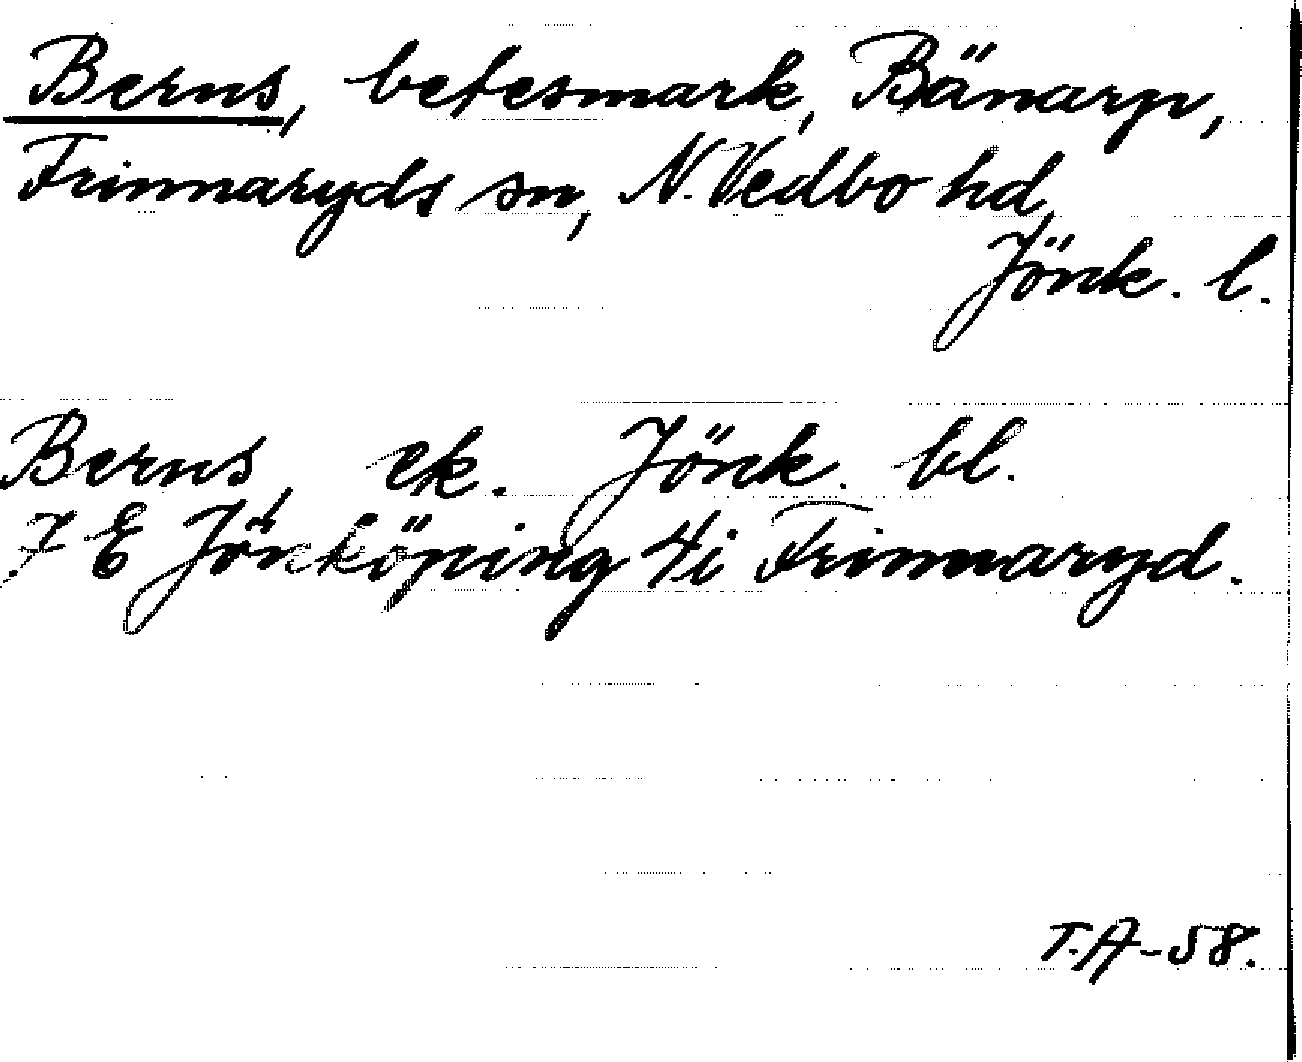 Berns, betesmark, Bänarp,
Frinnaryds sn, N. Vedbo hd,
Jönk. l.
Berns, ek. Jönk. bl.
7 E Jönköping 4i Frinnaryd.
T.A-58.